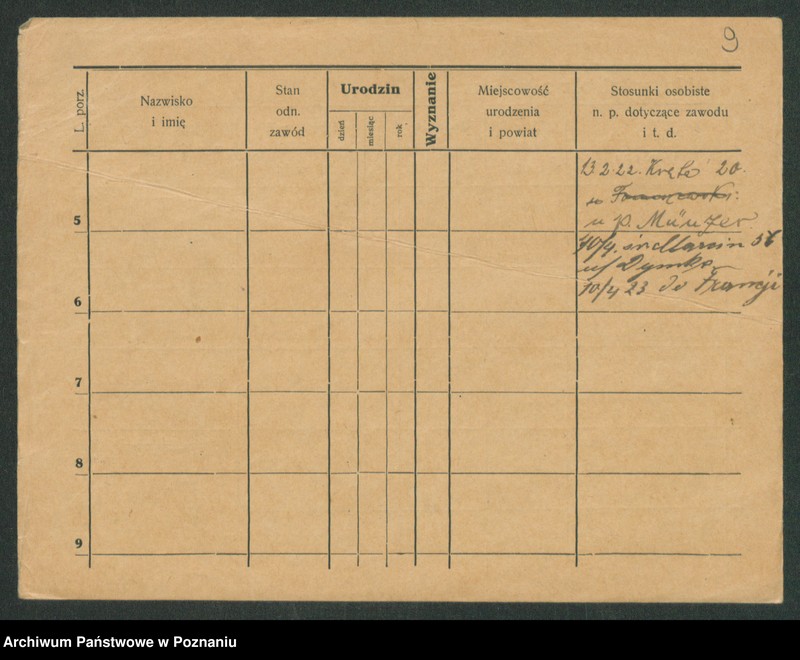 9
L. porz.
Nazwisko
i imię
Stan
odn.
zawód
Urodzin
dzień
miesiąc
rok
Wyznanie
Miejscowość
urodzenia
i powiat
Stosunki osobiste
n. p. dotyczące zawodu
i t. d.
13 2.22. Kręta 20.
u
5
u p. Münzer
10/4. św Marcin 56
u/ Dymka
6
10/4 23 do Francji
7
8
9
Archiwum Państwowe w Poznaniu